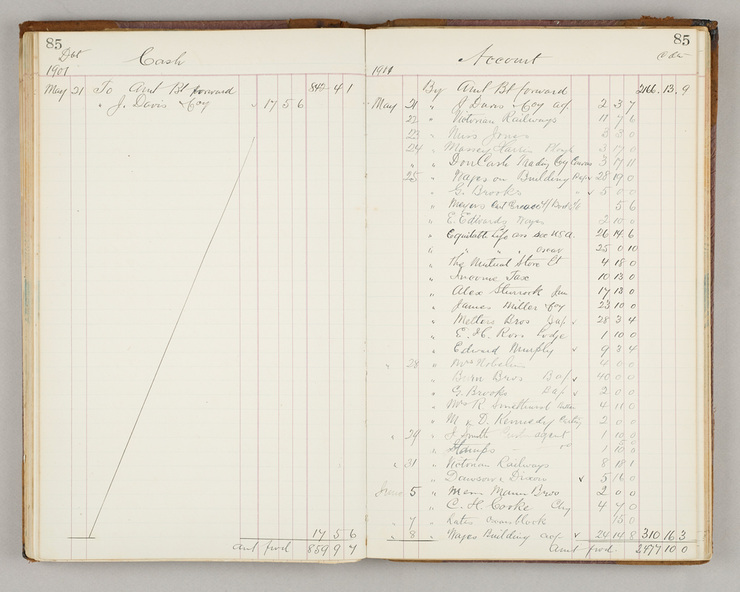 85
Dbt
Cash
1901
May 21 To Amt Bt forward 842 4 1
" J. Davis & Coy 17 5 6
17 5 6
amt fwd 859 9 7
85
Account
1901
By Amt Bt forward 2166 13 9
May 21 " J Davis & Coy a/c 2 3 7
22 " Victorian Railways 11 7 6
23 " Miss Jones 3 3 0
24 " Massey Harris 3 17 0
" Don Cash Trading Coy 3 17 11
25 " Wages on Building 28 19 0
" G. Brooks 5 0 0
" Meyers 5 6
" E. Edwards Wages 2 10 0
" Equitable Life ass soc U.S.A. 26 14 6
" " " 25 0 10
" The Mutual Store Lt 4 18 0
" Income Tax 10 13 0
" Alex Sturrock Jun 17 13 0
" James Miller & Coy 23 10 0
" Mellors Bros 28 3 4
" E. C. Ross Lodge 1 10 0
" Edward Murphy 9 3 4
" 28 " Mrs 4 0 0
" Burn Bros 40 0 0
" G. Brooks 2 0 0
" Mrs R. 4 11 0
" M & D. Kennedy 2 0 0
" 29 " J Smith agent 1 10 0
" Stamps 1 10 0
" 31 " Victorian Railways 8 18 1
" Dawson & Dixon 5 16 0
June 5 " Mann Bros 2 0 0
" C. H. Cooke 4 7 0
" 7 " Rates Cranbrook 15 0
" 8 " Wages Building a/c 24 14 8 310 16 3
Amt fwd 2477 10 0